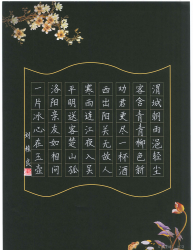 渭城朝雨浥轻尘
客舍青青柳色新
劝君更尽一杯酒
西出阳关无故人
寒雨连江夜入吴
平明送客楚山孤
洛阳亲友如相问
一片冰心在玉壶